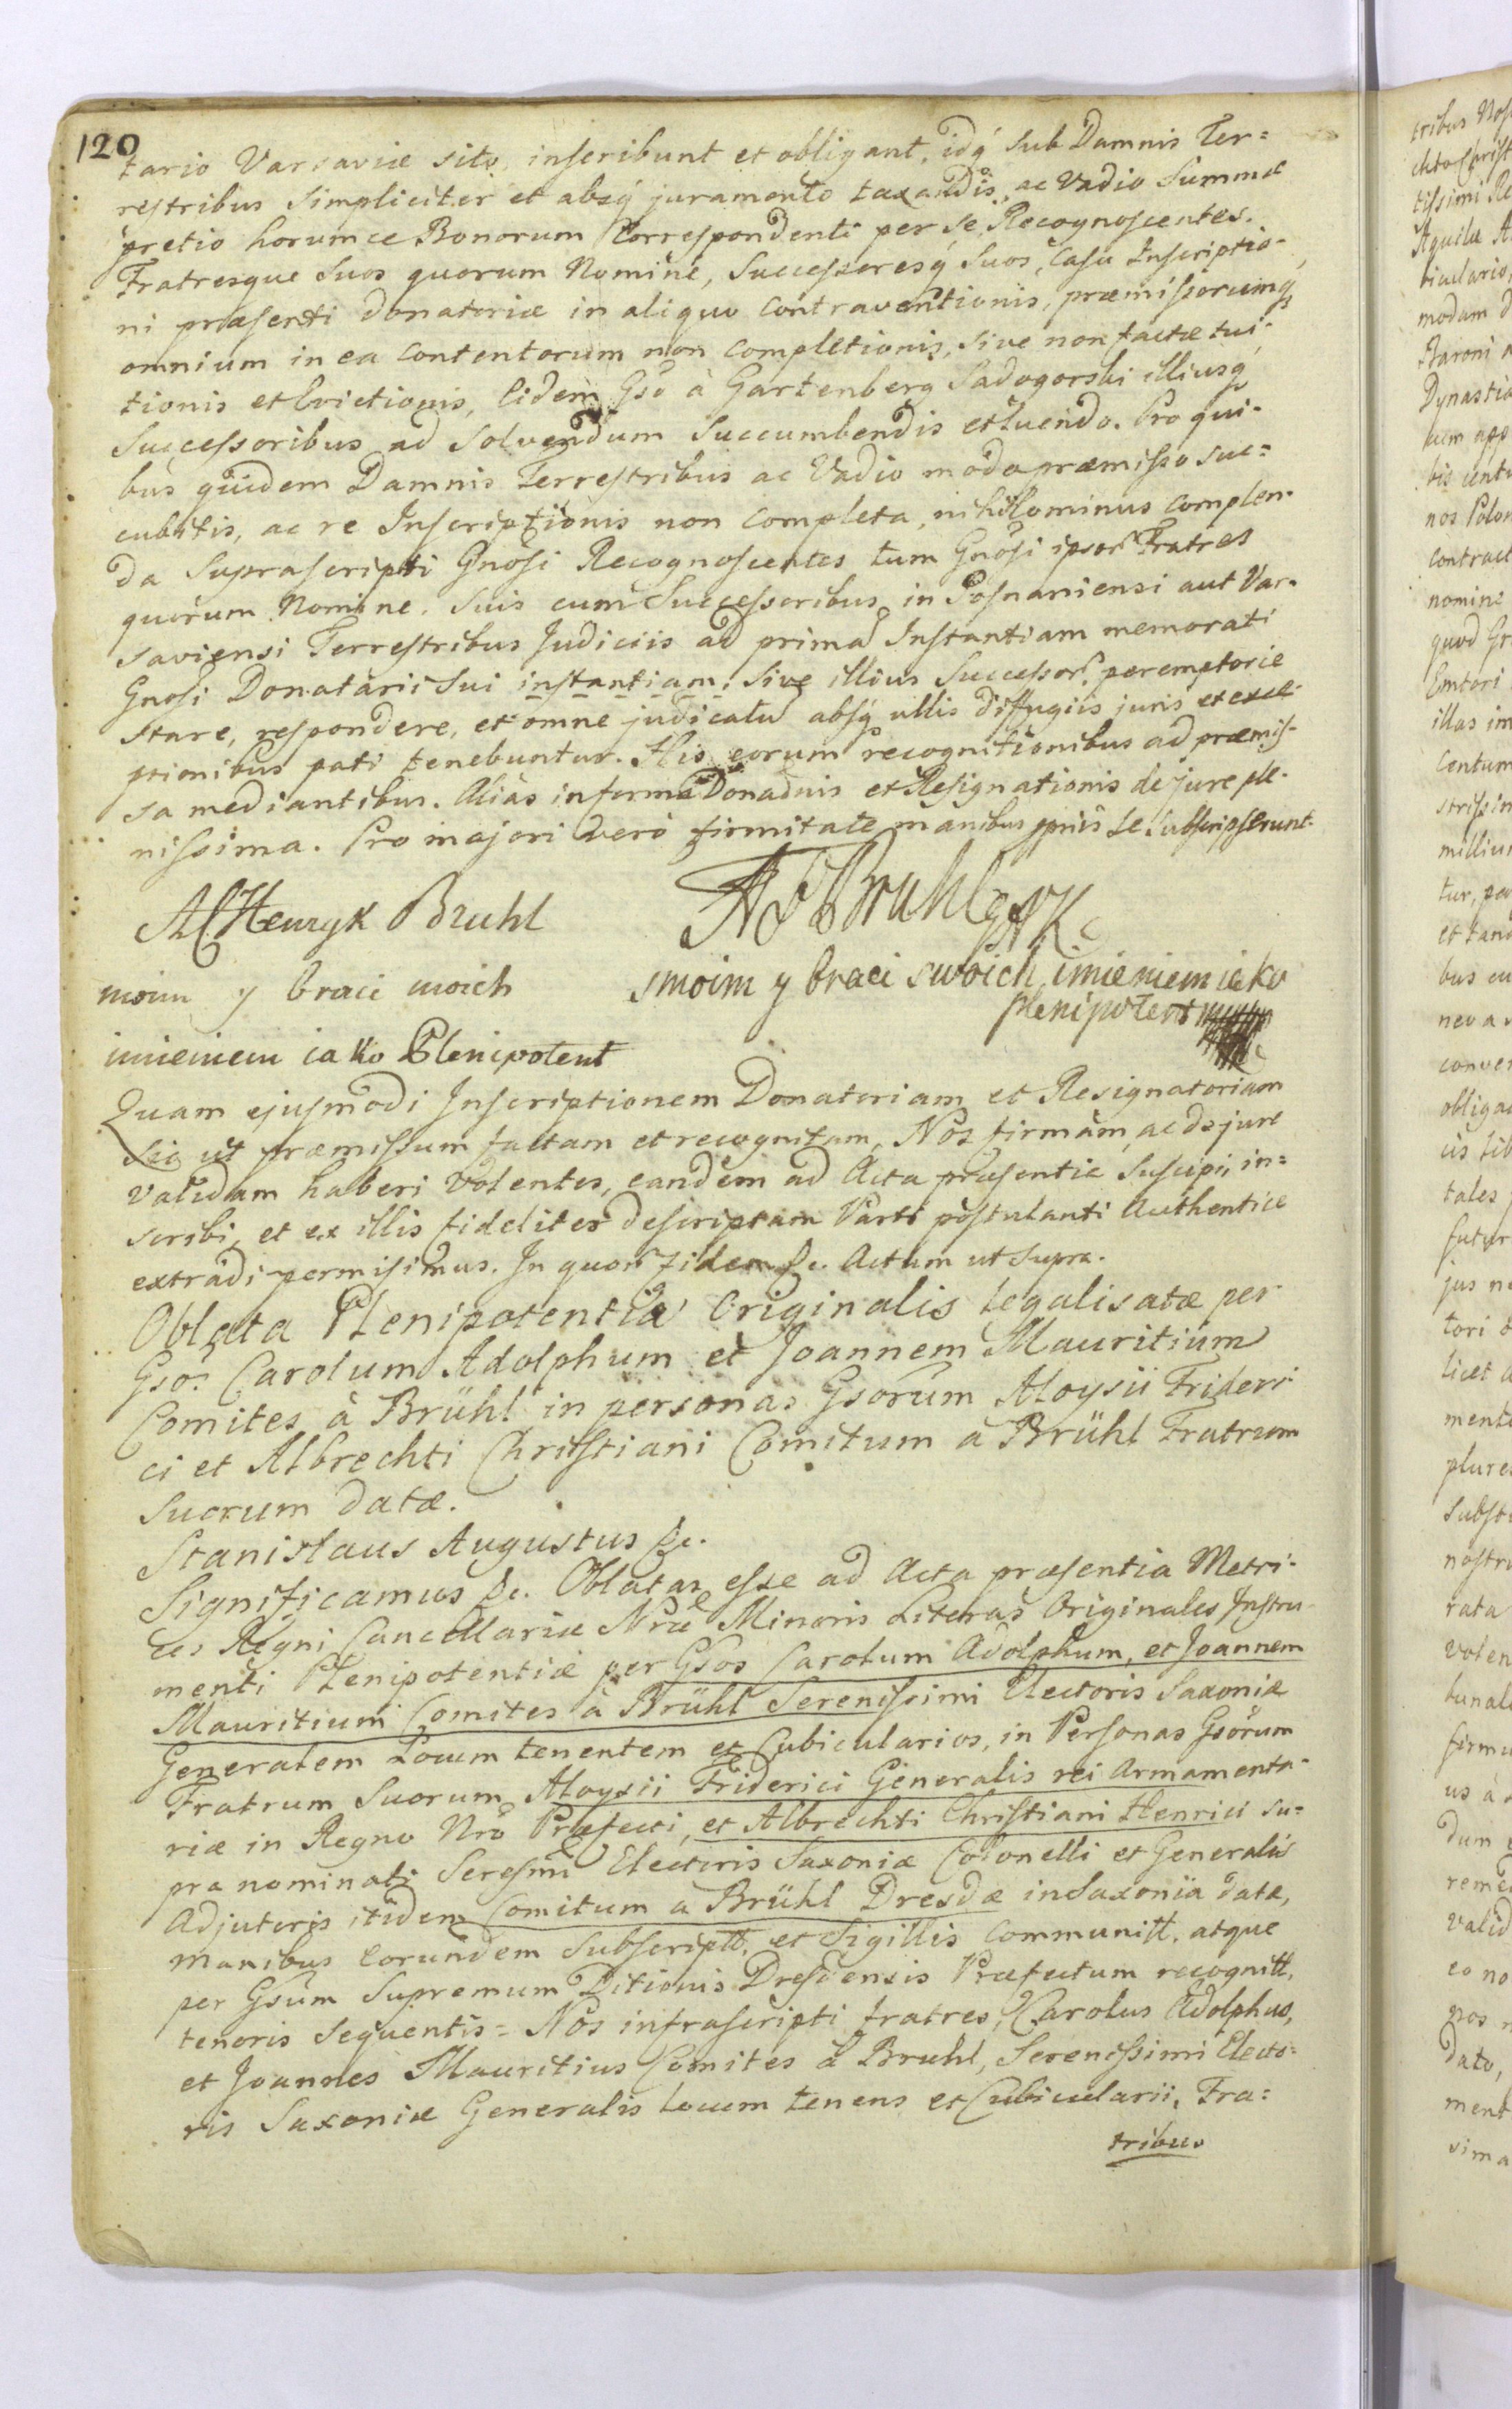 120
tario Varsaviæ sito inscribunt et obligant, idq́ sub Damnis Ter=
restribus simpliciter et absq́ juramento taxandis, ac Vadio Summæ
pretio horumce Bonorum Correspondenti per se Recognoscentes.
Fratresque suos quorum Nomine, Successoresq́ suos, Casu Inscriptio-
ni præsenti donatoriæ in aliquo contraventionis, præmissorumq́
omnium in ea contentorum non completionis, sive non factæ tui-
tionis et Evictionis, Eidem Gso à Gartenberg Sadogorski illiusq́
Successoribus ad solvendum succumbendis et luendo. Pro qui-
bus quidem Damnis Terrestribus ac Vadio modo præmisso suc=
cubitis, ac re Inscriptionis non completa, nihilominus complen-
da Suprascripti Gnosi Recognoscentes tum Gnosi ipsor Fratres
quorum Nomine, suis cum Successoribus in Posnaniensi aut Var-
saviensi Terrestribus Judiciis ad prima Instantiam memorati
Gnosi Donatarii sui instantiam, sive illius Successor. peremptorie
stare, respondere, et omne judicatu absq́ ullis diffugiis juris et exce-
ptionibus pati tenebuntur. His eorum recognitionibus ad præmis-
sa mediantibus. Aliàs in forma Donatnis et Resignationis de jure ple-
nissima. Pro majori verò firmitate manibus ppriis se subscripserunt.
Henryk Bruhl
Bruhl
moim y braci moich
swoim y braci swoich imieniem iako
plenipotent
imieniem iako Plenipotent
Quam ejusmodi Inscriptionem Donatoriam et Resignatoriam
sic ut præmissum factam et recognitam, Nos firmam, ac de jure
validam haberi volentes, eandem ad Acta præsentia suscipi, in=
scribi, et ex illis fideliter descriptam Parti postulanti Authentice
extradi permisimus. In quor fidem &c. Actum ut supra.
Oblata Plenipotentiæ Originalis legalisatæ per
Gsos Carolum Adolphum et Joannem Mauritium
Comites à Brühl in personas Gsorum Aloysii Frideri
ci et Albrechti Christiani Comitum à Brühl Fratrum
suorum datæ.
Stanislaus Augustus &c.
Significamus &c. Oblatas esse ad Acta præsentia Metri-
ces Regni Cancellariæ Nræ Minoris Literas Originales Instru-
menti Plenipotentiæ per Gsos Carolum Adolphum, et Joannem
Mauritium Comites à Brühl Serenissimi Electoris Saxoniæ
Generalem Locum tenentem et Cubicularios, in Personas Gsorum
Fratrum Suorum Aloysii Friderici Generalis rei Armamenta-
riæ in Regno Nro Præfecti, et Albrechti Christiani Henrici su=
pra nominati Seresmi Electoris Saxoniæ Colonelli et Generalis
Adjutoris itidem Comitum a Brühl Dresdæ in Saxonia datæ,
manibus eorundem subscriptt. et Sigillis communitt. atque
per Gsum Supremum Ditionis Dresdensis Præfectum recognitt,
tenoris sequentis = Nos infrascripti fratres, Carolus Adolphus,
et Joannes Mauritius Comites à Bruhl, Serenissimi Electo=
ris Saxoniæ Generalis locum tenens et Cubicularii, Fra=
tribus